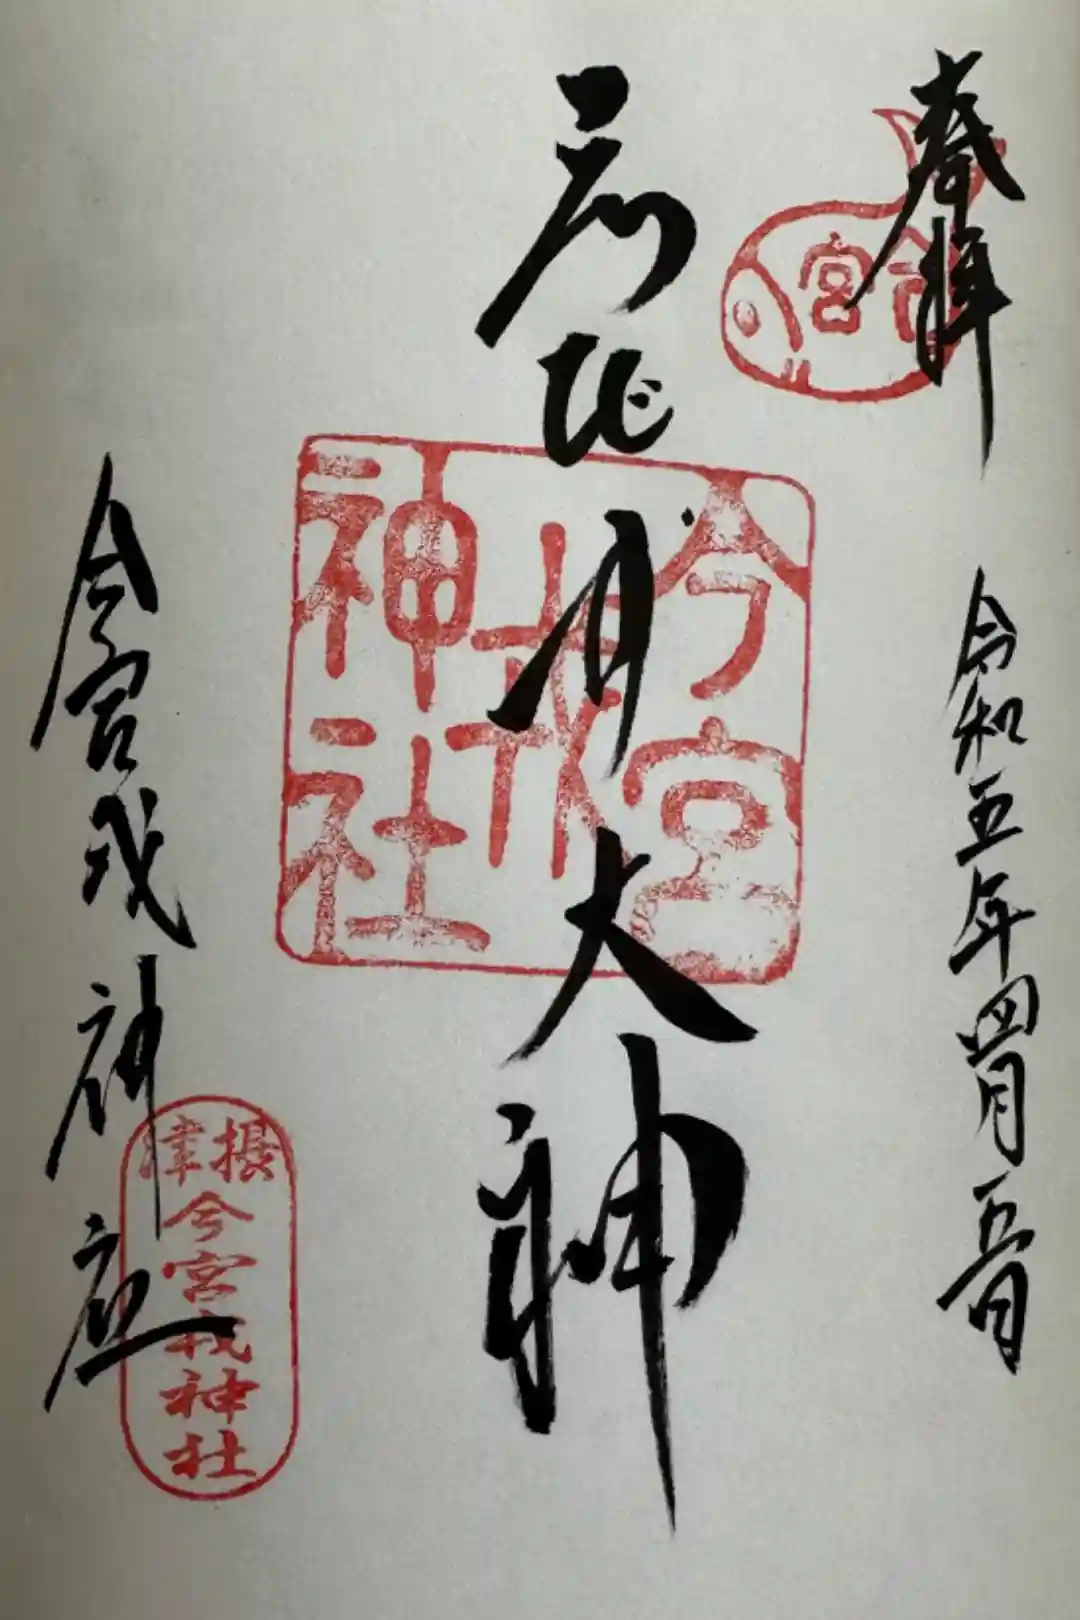 奉拝
今宮
令和五年四月五日
ゑびす大神
今宮
戎
神社
今宮戎神社
摂津
今宮戎神社